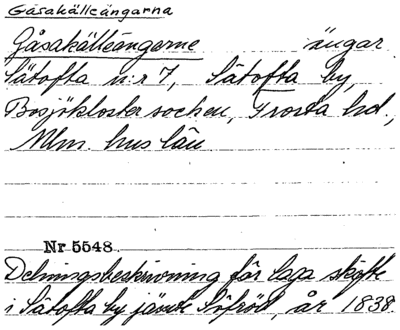 Gåsakälleängarna
Gåsakälleängarne ängar
Sätofta n:r 7, Sätofta by,
Bosjökloster socken, Frosta hd.,
Mlm. hus län.
Nr 5548.
Delningsbeskrivning för laga skifte
i Sätofta by jämte Löfröd, år 1838.